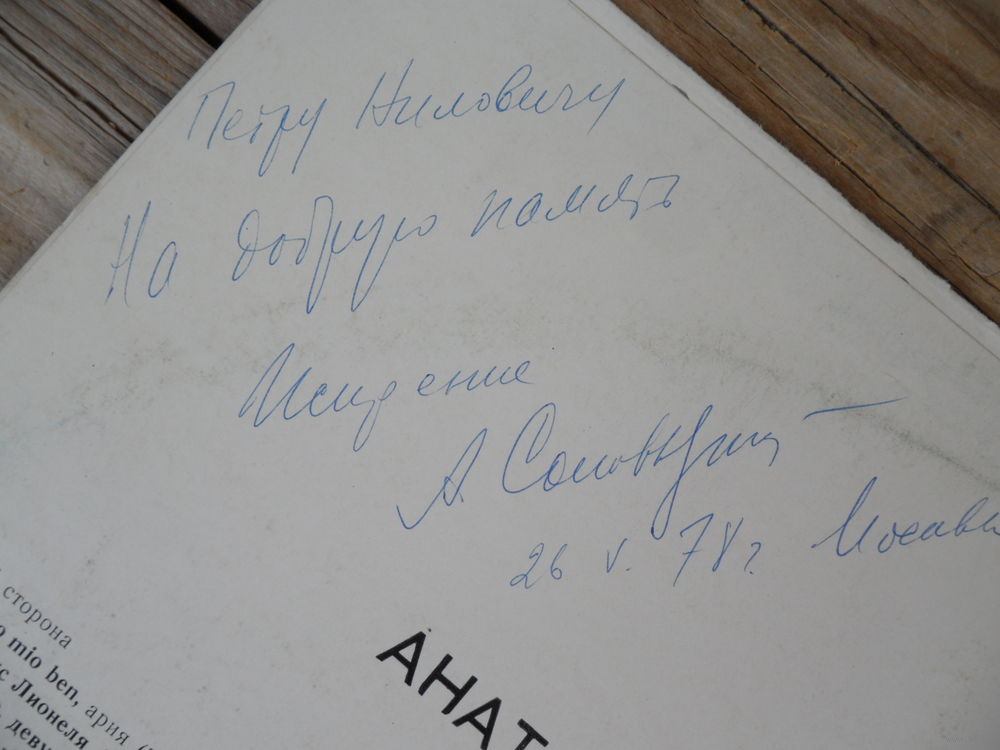 Петру Ниловичу
На добрую память
Искренне
А. Соловьян
26 V. 78 г. Москва
АНАТ
сторона
o mio ben, ария
с Лионеля
деву